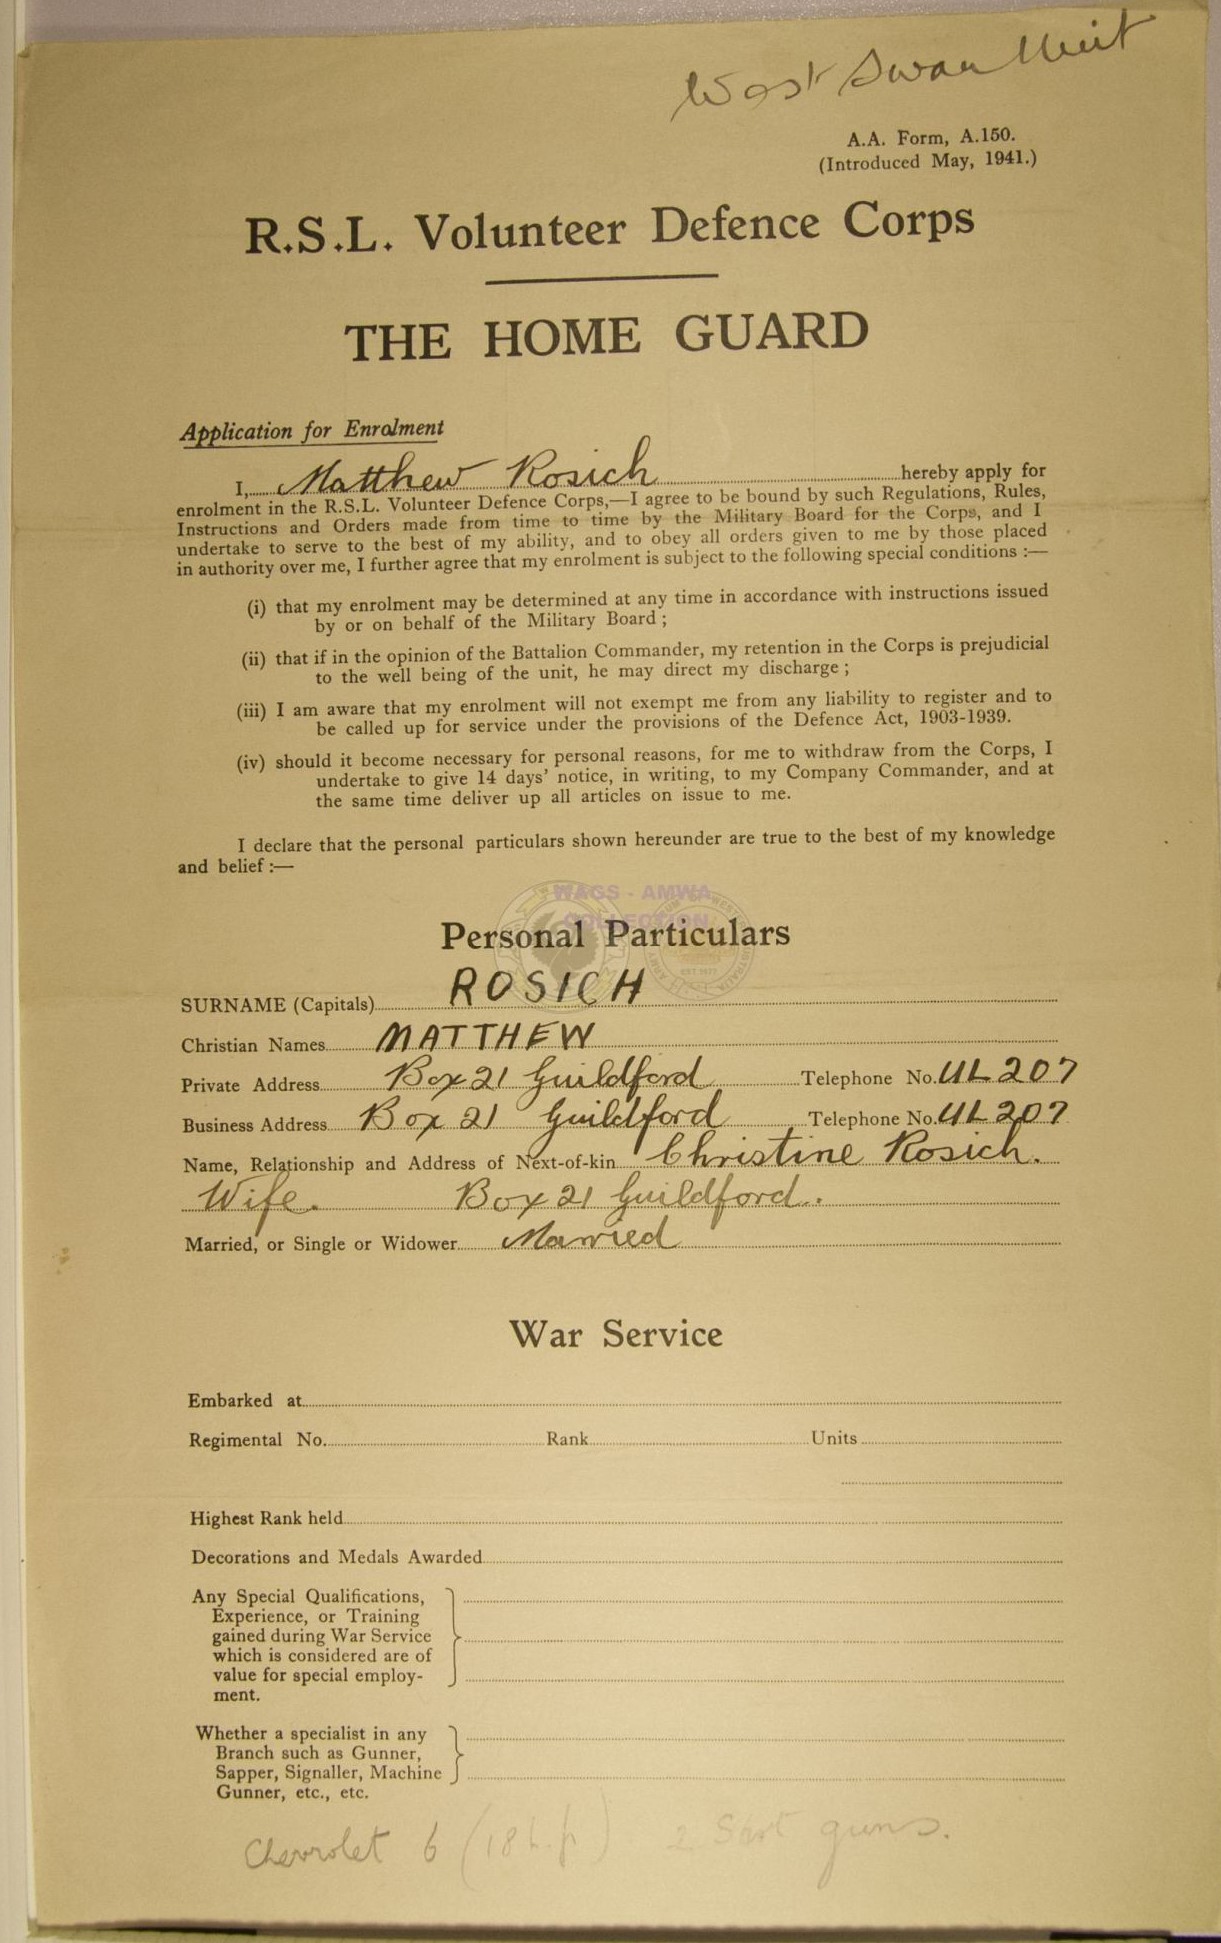 West Swan Unit
A.A. Form, A.150.
(Introduced May, 1941.)
R.S.L. Volunteer Defence Corps
THE HOME GUARD
Application for Enrolment
I, Matthew Rosich hereby apply for
enrolment in the R.S.L. Volunteer Defence Corps,—I agree to be bound by such Regulations, Rules,
Instructions and Orders made from time to time by the Military Board for the Corps, and I
undertake to serve to the best of my ability, and to obey all orders given to me by those placed
in authority over me, I further agree that my enrolment is subject to the following special conditions :—
(i) that my enrolment may be determined at any time in accordance with instructions issued
by or on behalf of the Military Board ;
(ii) that if in the opinion of the Battalion Commander, my retention in the Corps is prejudicial
to the well being of the unit, he may direct my discharge ;
(iii) I am aware that my enrolment will not exempt me from any liability to register and to
be called up for service under the provisions of the Defence Act, 1903-1939.
(iv) should it become necessary for personal reasons, for me to withdraw from the Corps, I
undertake to give 14 days' notice, in writing, to my Company Commander, and at
the same time deliver up all articles on issue to me.
I declare that the personal particulars shown hereunder are true to the best of my knowledge
and belief :—
WAGS - AMWA
COLLECTION
Personal Particulars
SURNAME (Capitals) ROSICH
Christian Names MATTHEW
Private Address Box 21 Guildford Telephone No. UL 207
Business Address Box 21 Guildford Telephone No. UL 207
Name, Relationship and Address of Next-of-kin Christine Rosich.
Wife. Box 21 Guildford.
Married, or Single or Widower Married
War Service
Embarked at
Regimental No. Rank Units
Highest Rank held
Decorations and Medals Awarded
Any Special Qualifications,
Experience, or Training
gained during War Service
which is considered are of
value for special employ-
ment.
Whether a specialist in any
Branch such as Gunner,
Sapper, Signaller, Machine
Gunner, etc., etc.
Chevrolet 6 (18 h.p) 2 guns.